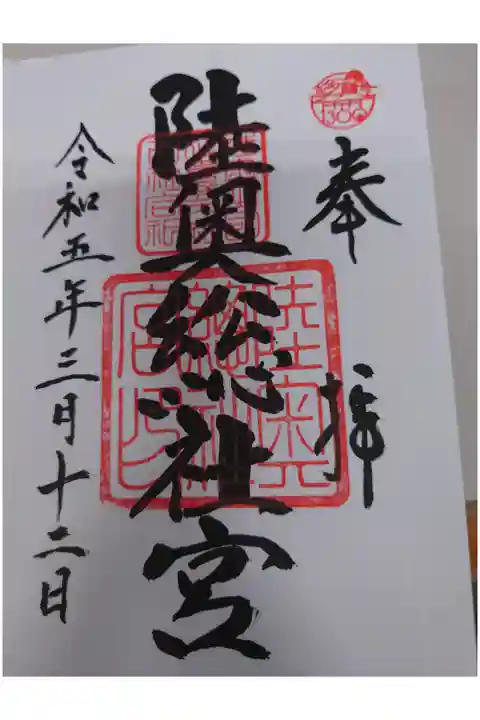 奉拝
陸奥総社宮
令和五年三月十二日
多賀城
1300